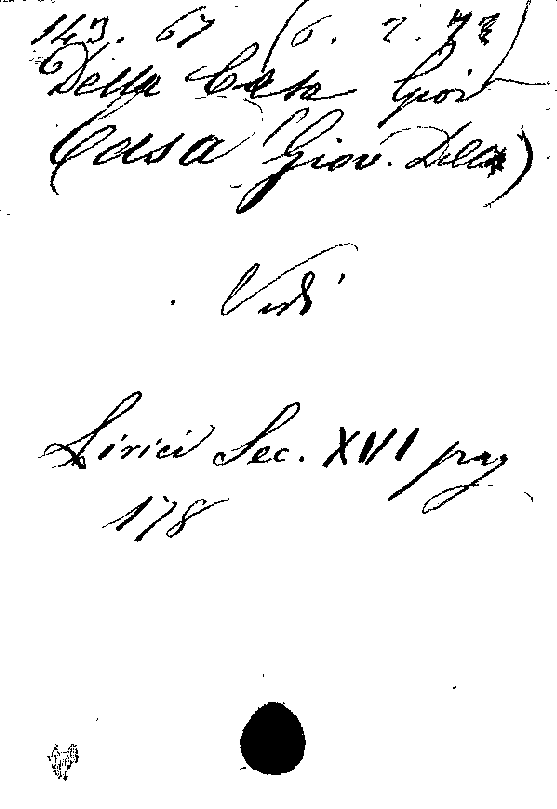 143. 67 (6. 7. 73)
Della Casa Giov
(Casa Giov. Della)
Vedi
Lirici Sec. XVI pag
178